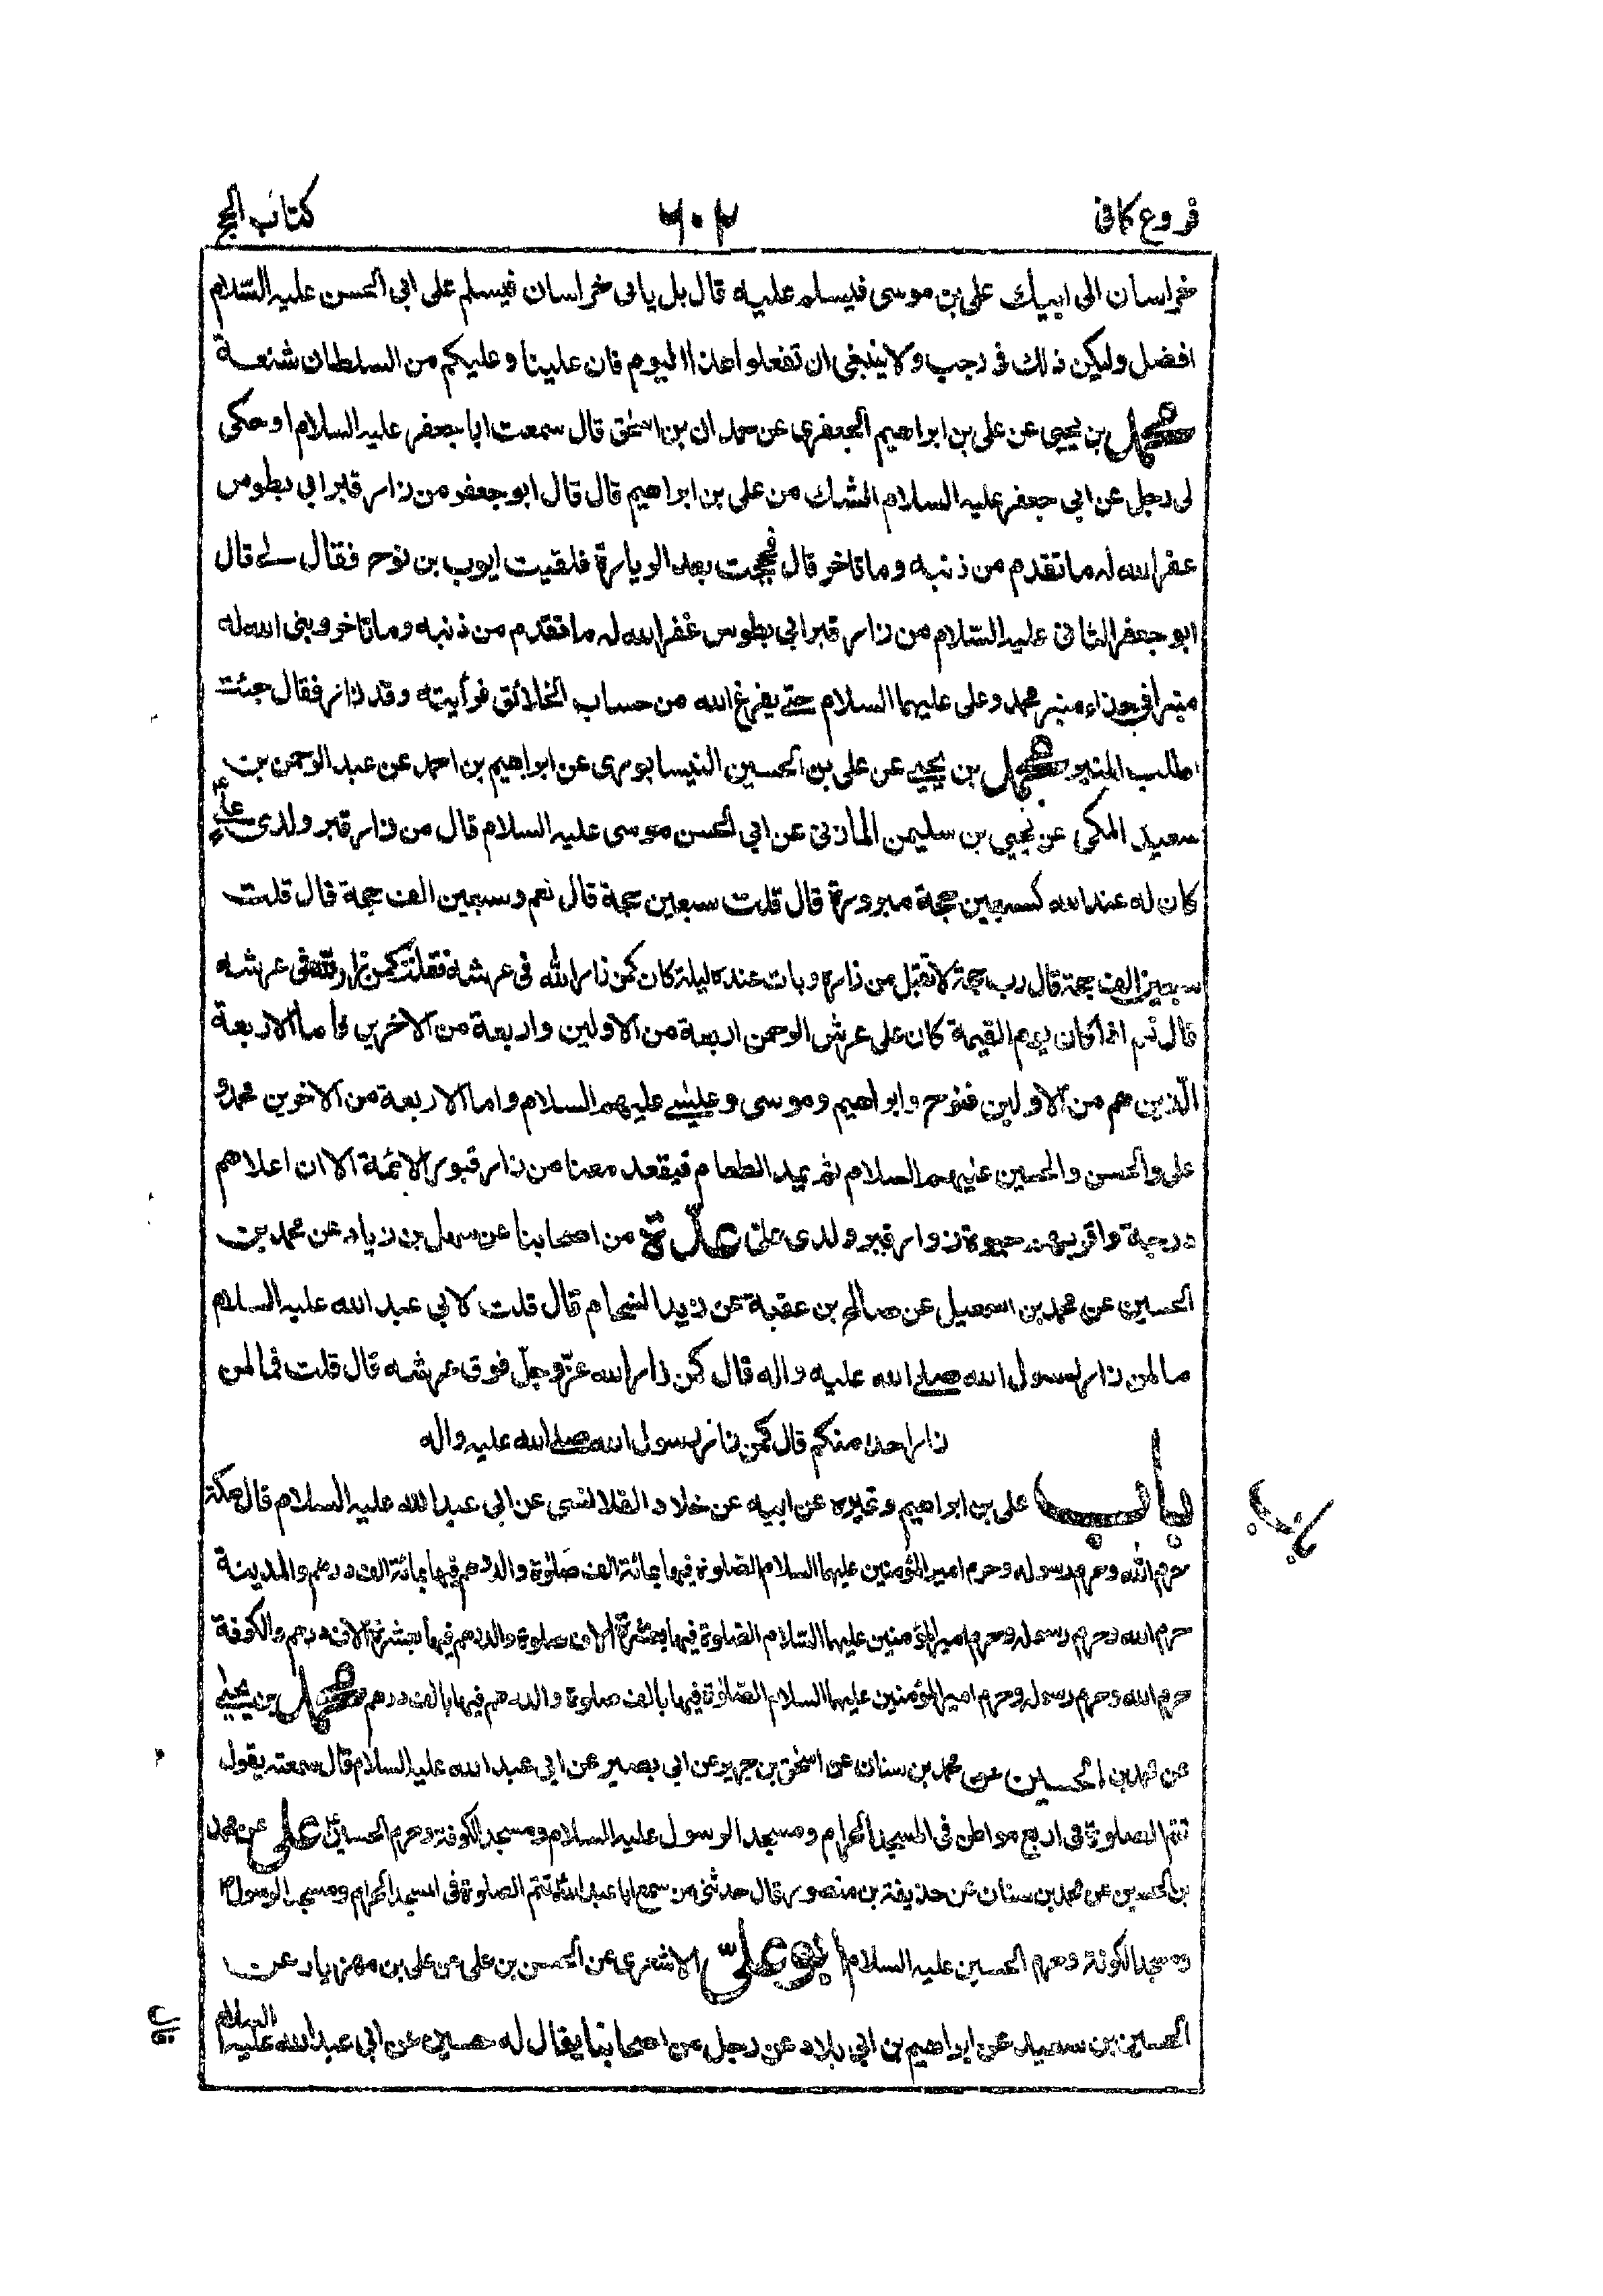 فروع كافى ٦٠٢ كتاب الحج
خراسان الى ابيك على بن موسى فيسلم عليه قال بل ياتى خراسان فيسلم على ابى الحسن عليه السّلام
افضل وليكن ذلك فى رجب ولا ينبغى ان تفعلوا هذا اليوم فان علينا وعليكم من السلطان شنعة
محمد بن يحيى عن على بن ابراهيم الجعفرى عن حمدان بن اسحٰق قال سمعت ابا جعفر عليه السلام او حكى
لى رجل عن ابى جعفر عليه السلام الشك من على بن ابراهيم قال قال ابو جعفر من زار قبر ابى بطوس
غفر الله له ما تقدم من ذنبه وما تاخر قال فحججت بعد الزيارة فلقيت ايوب بن نوح فقال لے قال
ابو جعفر الثانى عليه السّلام من زار قبر ابى بطوس غفر الله له ما تقدم من ذنبه وما تاخر وبنى الله له
منبرا فى حذاء منبر محمد وعلى عليهما السلام حتے يفرغ الله من حساب الخلائق فرأيته وقد زار فقال جئت
اطلب المنبر محمد بن يحيے عن على بن الحسين النيسابورى عن ابراهيم بن احمد عن عبد الرحمن بن
سعيد المكى عن يحيى بن سليمن المازنى عن ابى الحسن موسى عليه السلام قال من زار قبر ولدى علىّ
كان له عند الله كسبعين حجة مبرورة قال قلت سبعين حجة قال نعم وسبعين الف حجة قال قلت
سبعين الف حجة قال رب حجة لا تقبل من زاره وبات عنده ليلة كان كمن زار الله فى عرشه فقلت كمن زار الله فى عرشه
قال نعم اذا كان يوم القيمة كان على عرش الرحمن اربعة من الاولين واربعة من الاخرين فأما الاربعة
الّذين هم من الاولين فنوح وابراهيم وموسى وعيسے عليهم السلام واما الاربعة من الاخرين محمد و
على والحسن والحسين عليهم السلام ثم يمد الطعام فيقعد معنا من زار قبور الائمة الا ان اعلاهم
درجة واقربهم حبوة زوار قبر ولدى على عدّة من اصحابنا عن سهل بن زياد عن محمد بن
الحسين عن محمد بن اسمعيل عن صالح بن عقبة عن زيد الشحام قال قلت لابى عبد الله عليه السلام
ما لمن زار رسول الله صلے الله عليه واله قال كمن زار الله عزّ وجلّ فوق عرشه قال قلت فما لمن
زار احدا منكم قال كمن زار رسول الله صلے الله عليه واله
باب على بن ابراهيم وغيره عن ابيه عن خلاد القلانسى عن ابى عبد الله عليه السلام قال مكة
حرم الله وحرم رسوله وحرم امير المؤمنين عليهما السلام الصلوة فيها بمائة الف صلوة والدرهم فيها بمائة الف درهم والمدينة
حرم الله وحرم رسوله وحرم امير المؤمنين عليهما السّلام الصلوة فيها بعشرة آلاف صلوة والدرهم فيها بعشرة آلاف درهم والكوفة
حرم الله وحرم رسوله وحرم امير المؤمنين عليهما السلام الصلوة فيها بالف صلوة والدرهم فيها بالف درهم محمد بن يحيے
عن محمد بن الحسين عن محمد بن سنان عن اسحٰق بن جرير عن ابى بصير عن ابى عبد الله عليه السلام قال سمعته يقول
تتم الصلوة فى اربع مواطن فى المسجد الحرام ومسجد الرسول عليه السلام ومسجد الكوفة وحرم الحسين على عن محمد
بن الحسين عن محمد بن سنان عن حذيفة بن منصور قال حدثنى من سمع ابا عبد الله تتم الصلوة فى المسجد الحرام ومسجد الرسول
ومسجد الكوفة وحرم الحسين عليه السلام ابو علىّ الاشعرى عن الحسن بن على عن على بن مهزيار عن
الحسين بن سعيد عن ابراهيم بن ابى بلاد عن رجل من اصحابنا يقال له حسين عن ابى عبد الله عليه السلام
باب